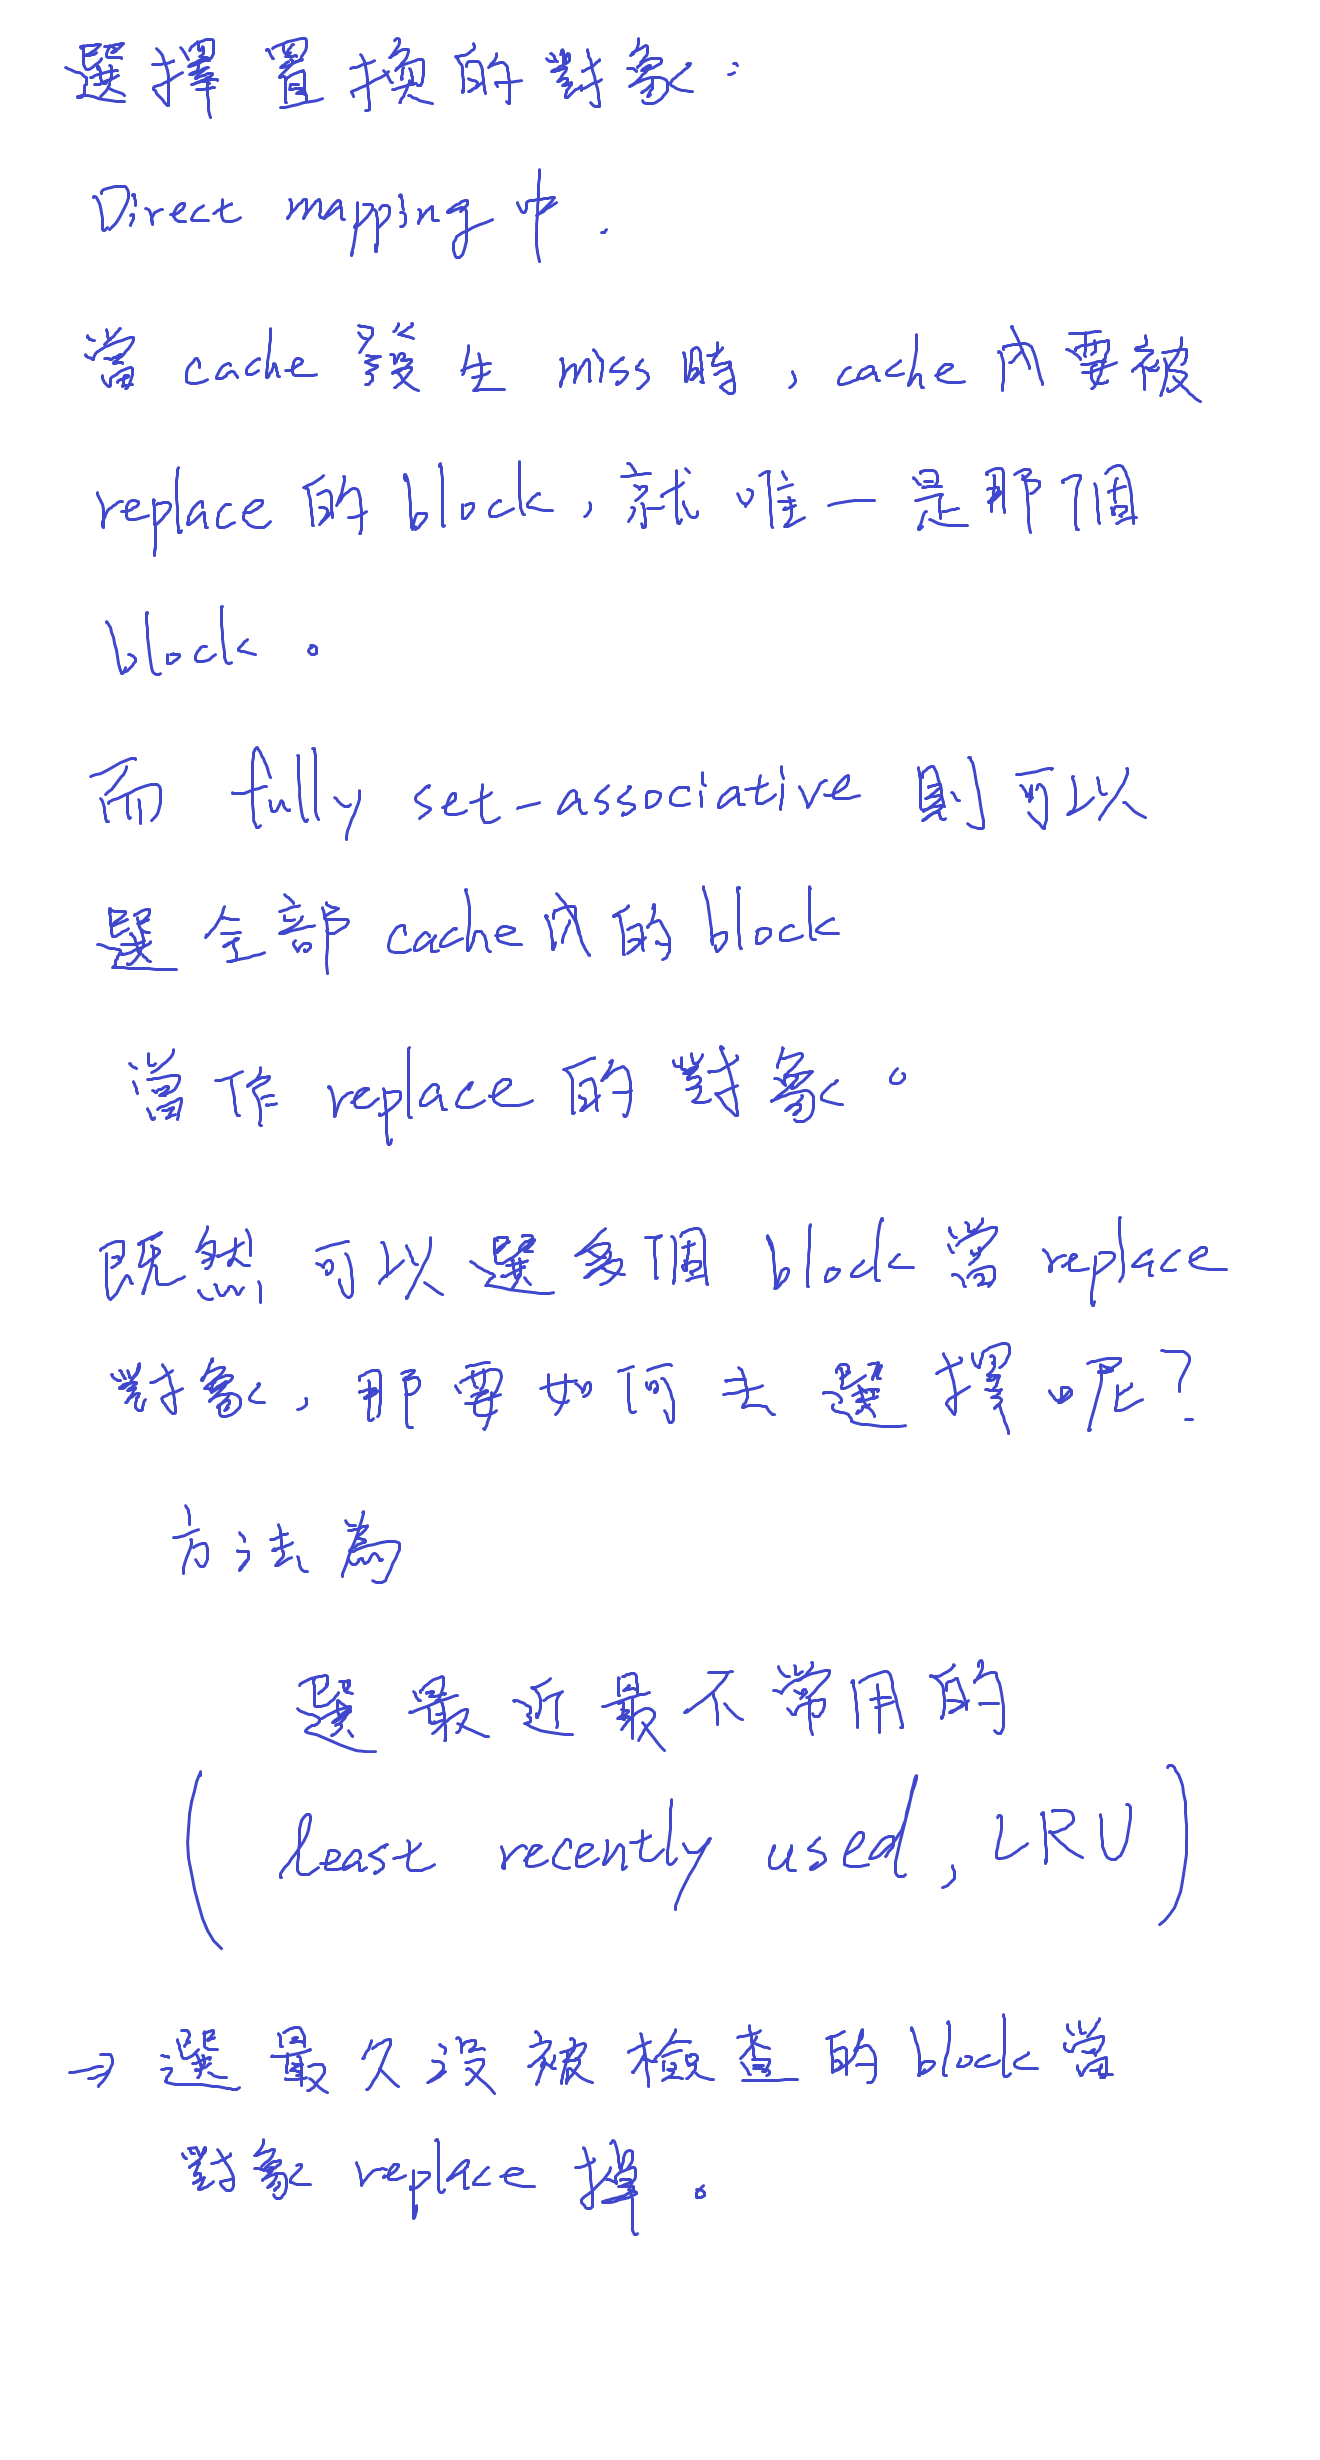 選擇置換的對象:
Direct mapping中.
當cache發生miss時,cache內要被
replace的block,就唯一是那個
block。
而fully set-associative則可以
選全部cache內的block
當作replace的對象。
既然可以選多個block當replace
對象,那要如何去選擇呢?
方法為
選最近最不常用的
(least recently used, LRU)
→選最久沒被檢查的block當
對象replace掉。